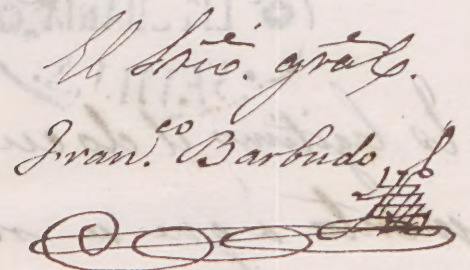 El Srio. gral.
Franco. Barbudo